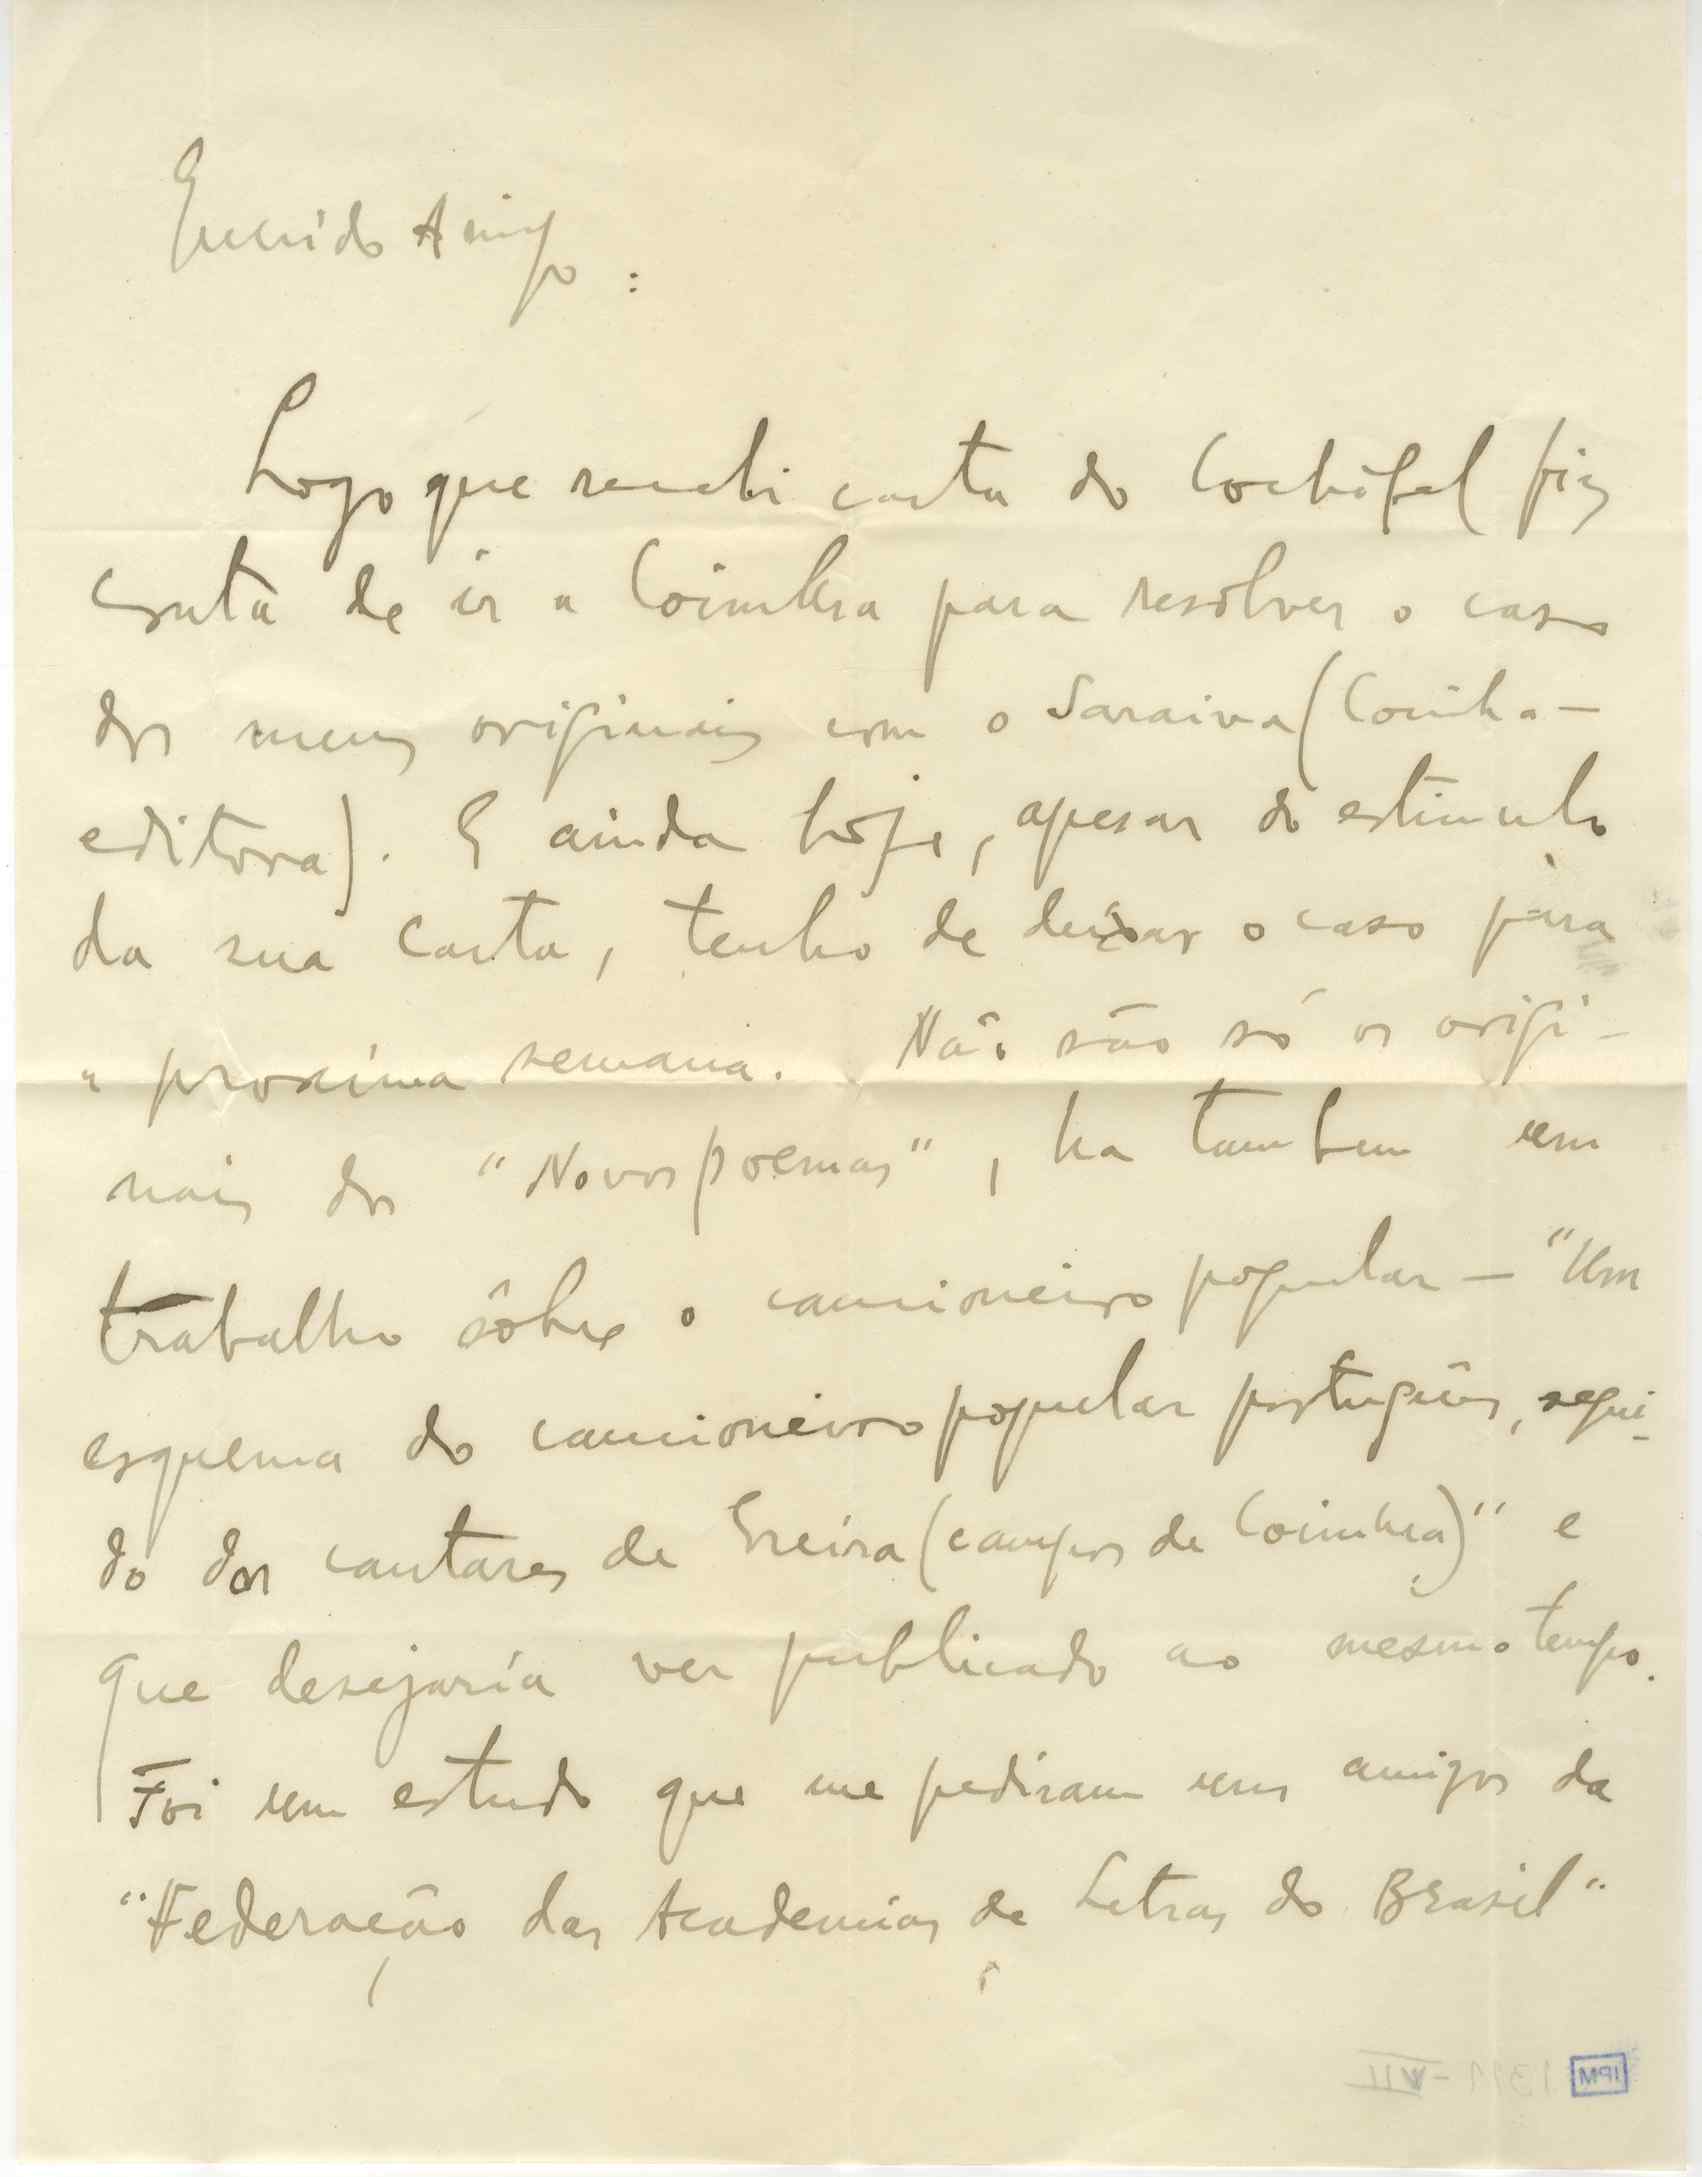 Querido Amigo :
Logo que recebi carta do Cochofel fiz
conta de ir a Coimbra para resolver o caso
dos meus originais com o Saraiva (Coimbra-
editora). E ainda hoje, apesar do estimulo
da sua carta, tenho de deixar o caso para
a proxima semana. Não são só os origi-
nais dos "Novos poemas", ha tambem um
trabalho sôbre o cancioneiro popular — "Um
esquema do cancioneiro popular português, segui-
do dos cantares de Ereira (campos de Coimbra)" e
que desejaria ver publicado ao mesmo tempo.
Foi um estudo que me pediram uns amigos da
"Federação das Academias de Letras do Brasil"
IPM